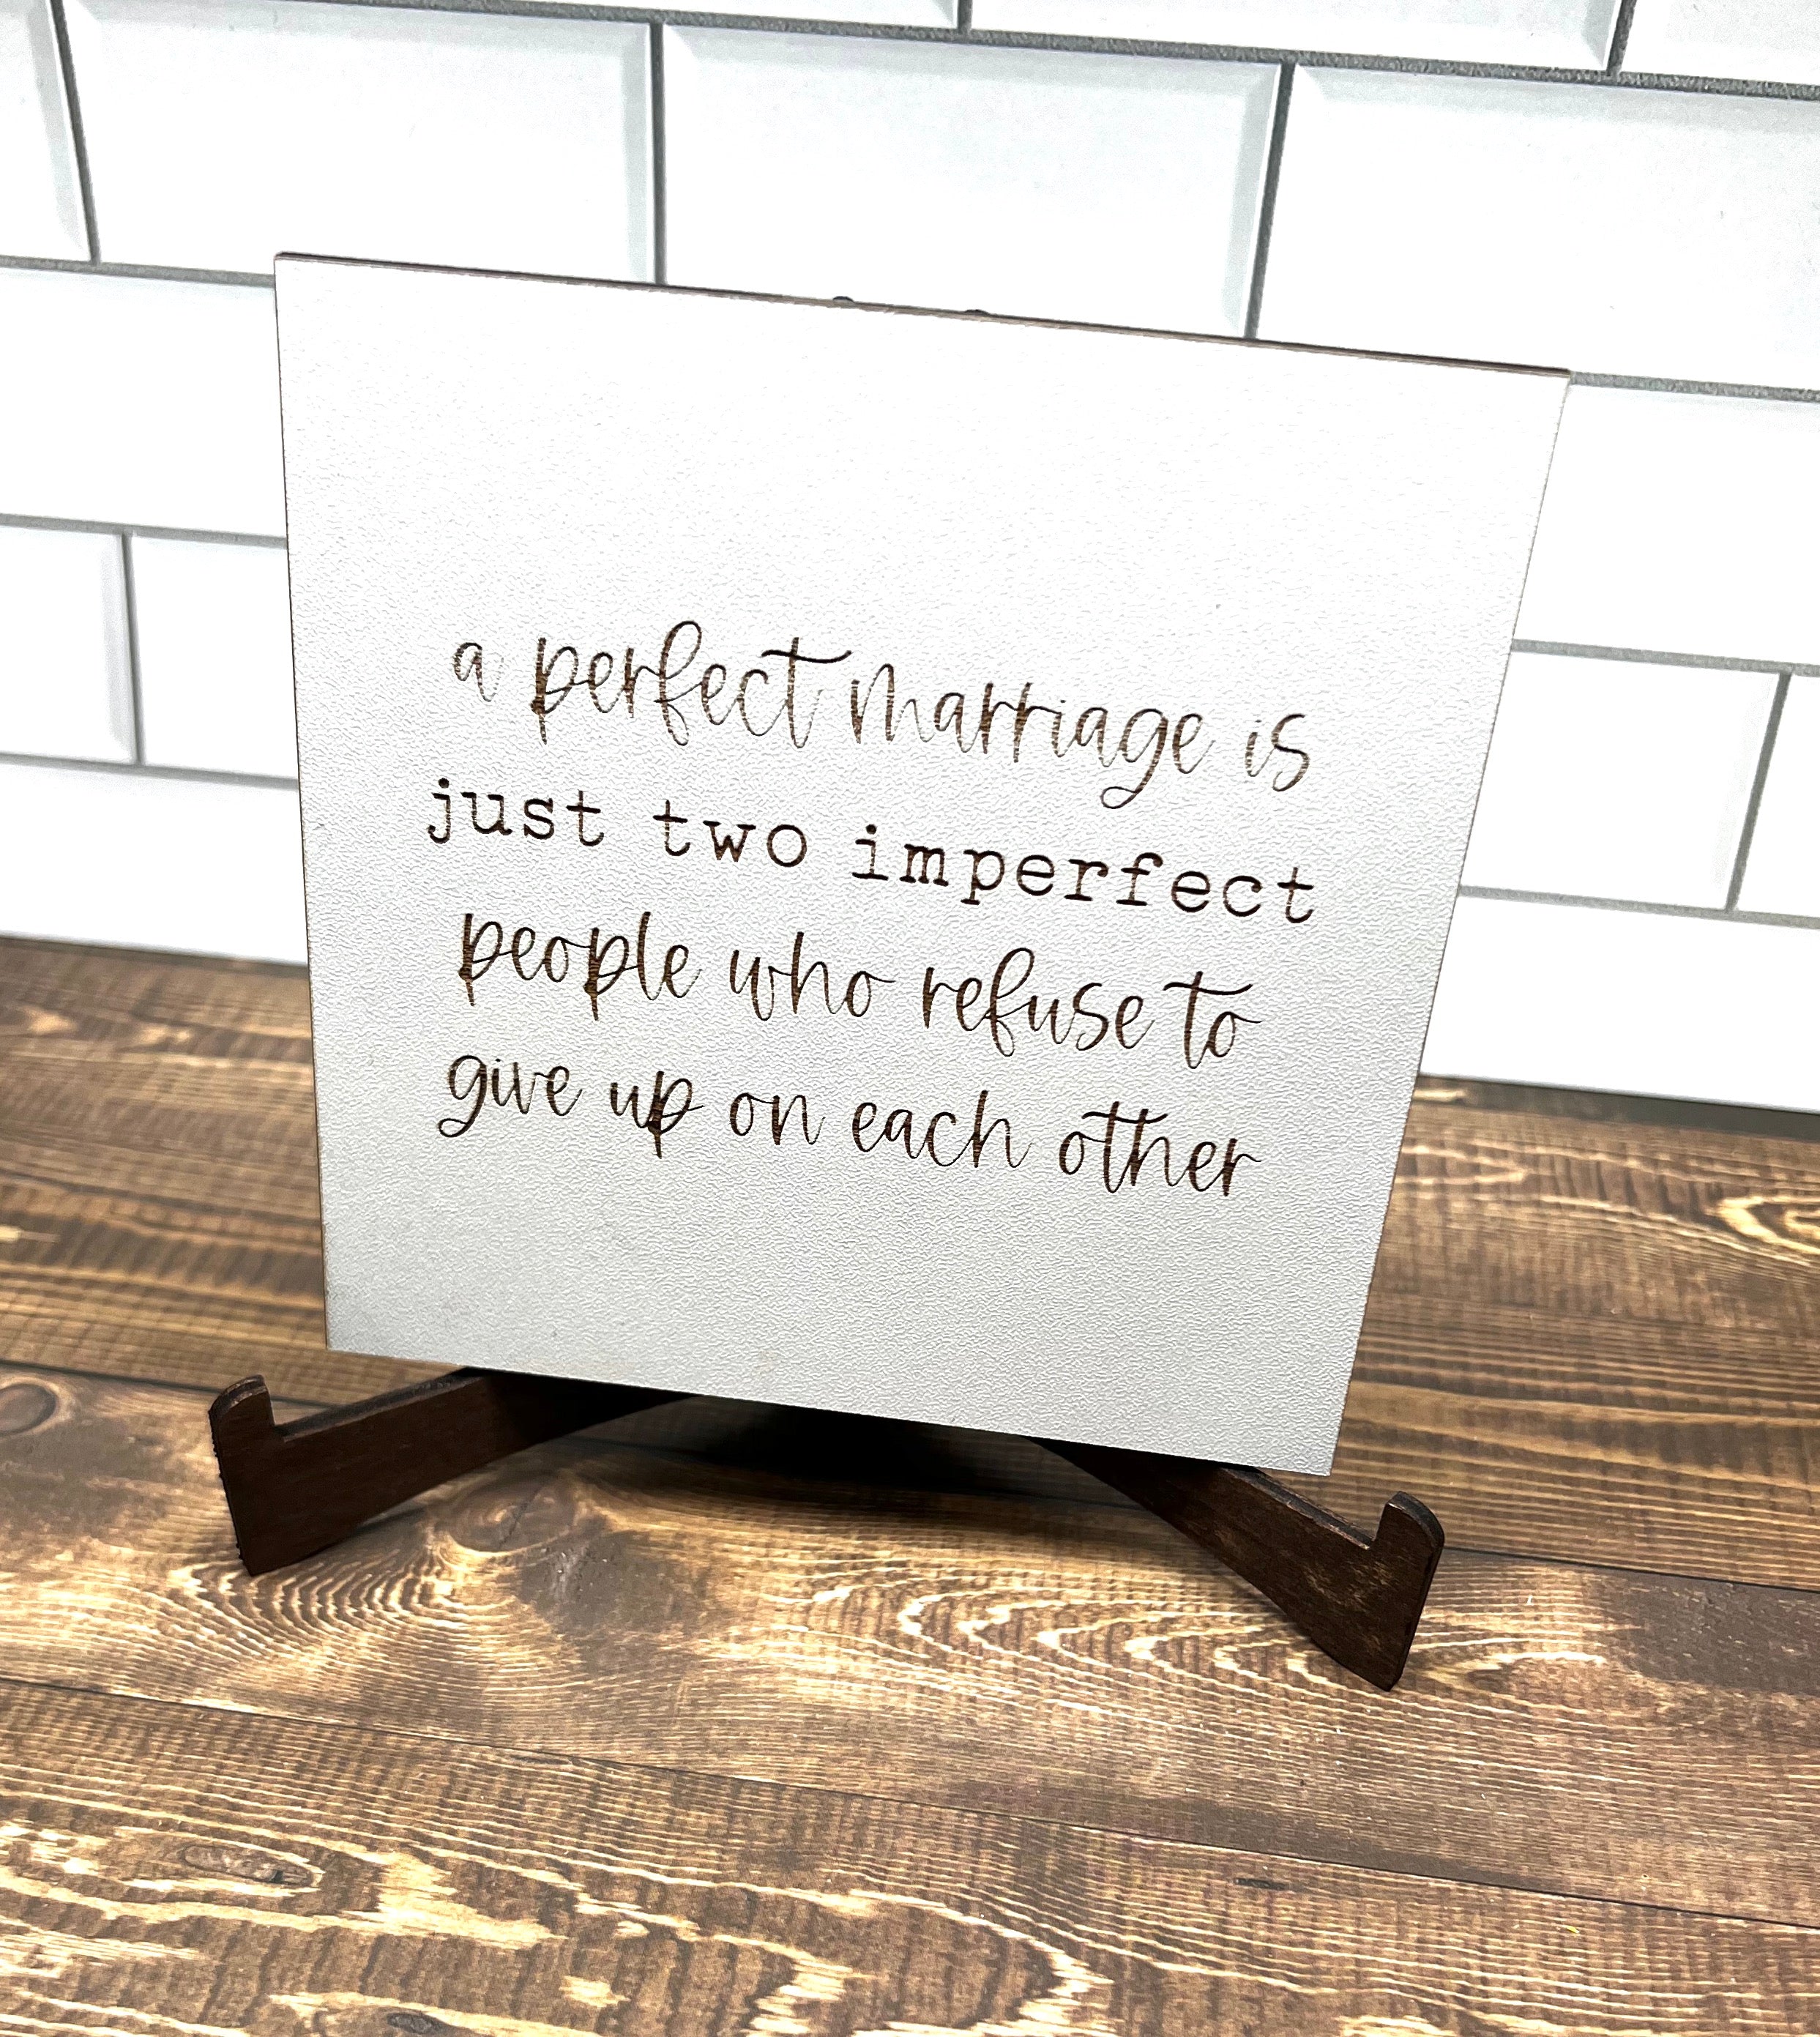 a perfect marriage is
just two imperfect
people who refuse to
give up on each other